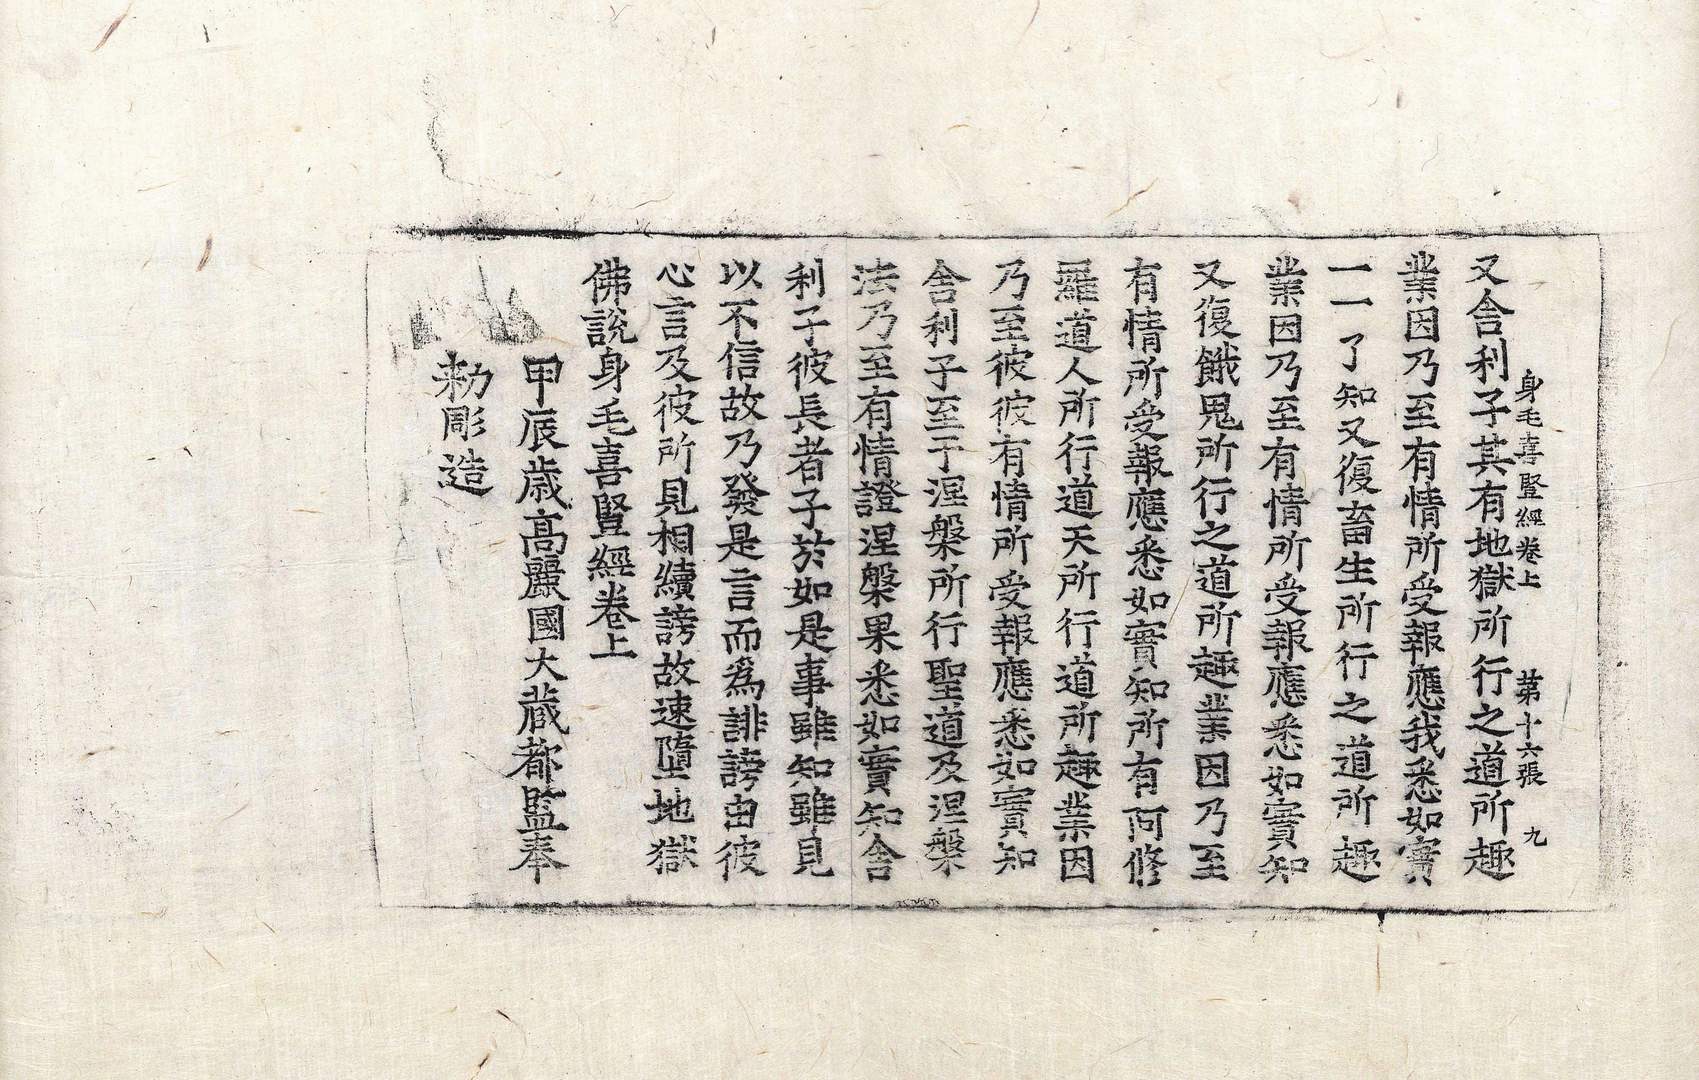 身毛喜豎經卷上 第十六張 九
又舍利子其有地獄所行之道所趣
業因乃至有情所受報應我悉如實
一一了知又復畜生所行之道所趣
業因乃至有情所受報應悉如實知
又復餓鬼所行之道所趣業因乃至
有情所受報應悉如實知所有阿修
羅道人所行道天所行道所趣業因
乃至彼彼有情所受報應悉如實知
舍利子至于涅槃所行聖道及涅槃
法乃至有情證涅槃果悉如實知舍
利子彼長者子於如是事雖知雖見
以不信故乃發是言而爲誹謗由彼
心言及彼所見相續謗故速墮地獄
佛說身毛喜豎經卷上
甲辰歲高麗國大藏都監奉
勑彫造